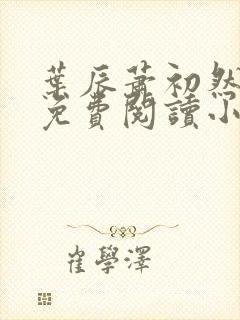 葉辰蕭初然
免費閱讀小
崔學澤